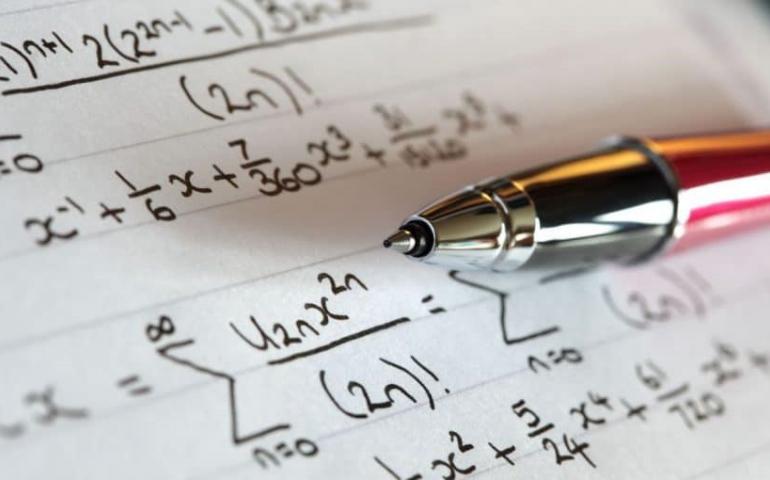 1)ⁿ⁺¹ 2(2²ⁿ⁻¹ - 1)B₂ₙx
(2n)!
=0
x⁻¹ + 1/6 x + 7/360 x³ + 31/15120 x⁵ +
x = ∞ ∑ n=0 U₂ₙx²ⁿ / (2n)! = ∑ n=0 (2n)!
x² + 5/24 x⁴ + 61/720 x⁶ +